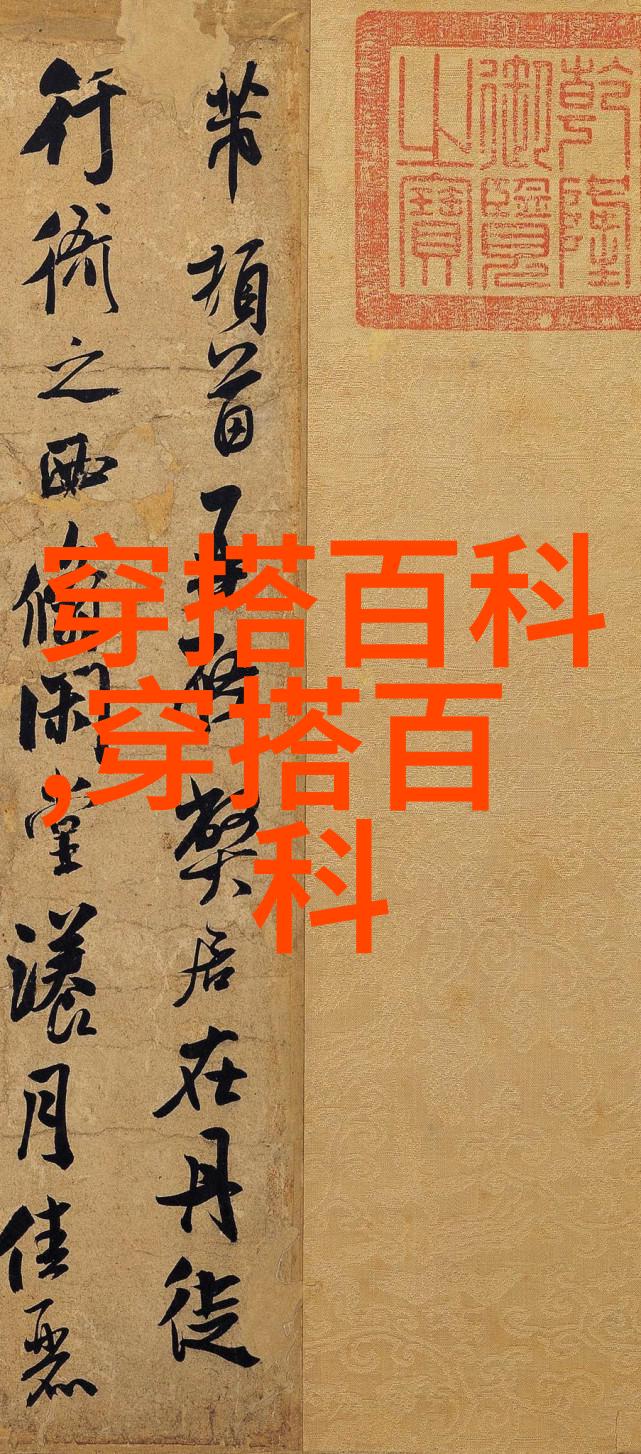 乾隆
御覽
之寶
芾頓首再啓弊居在丹徒
行衙之西翛閑堂漾月佳麗
穿搭百科
,穿搭百
科